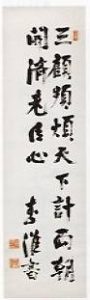 三顧頻煩天下計兩朝
開濟老臣心 李書